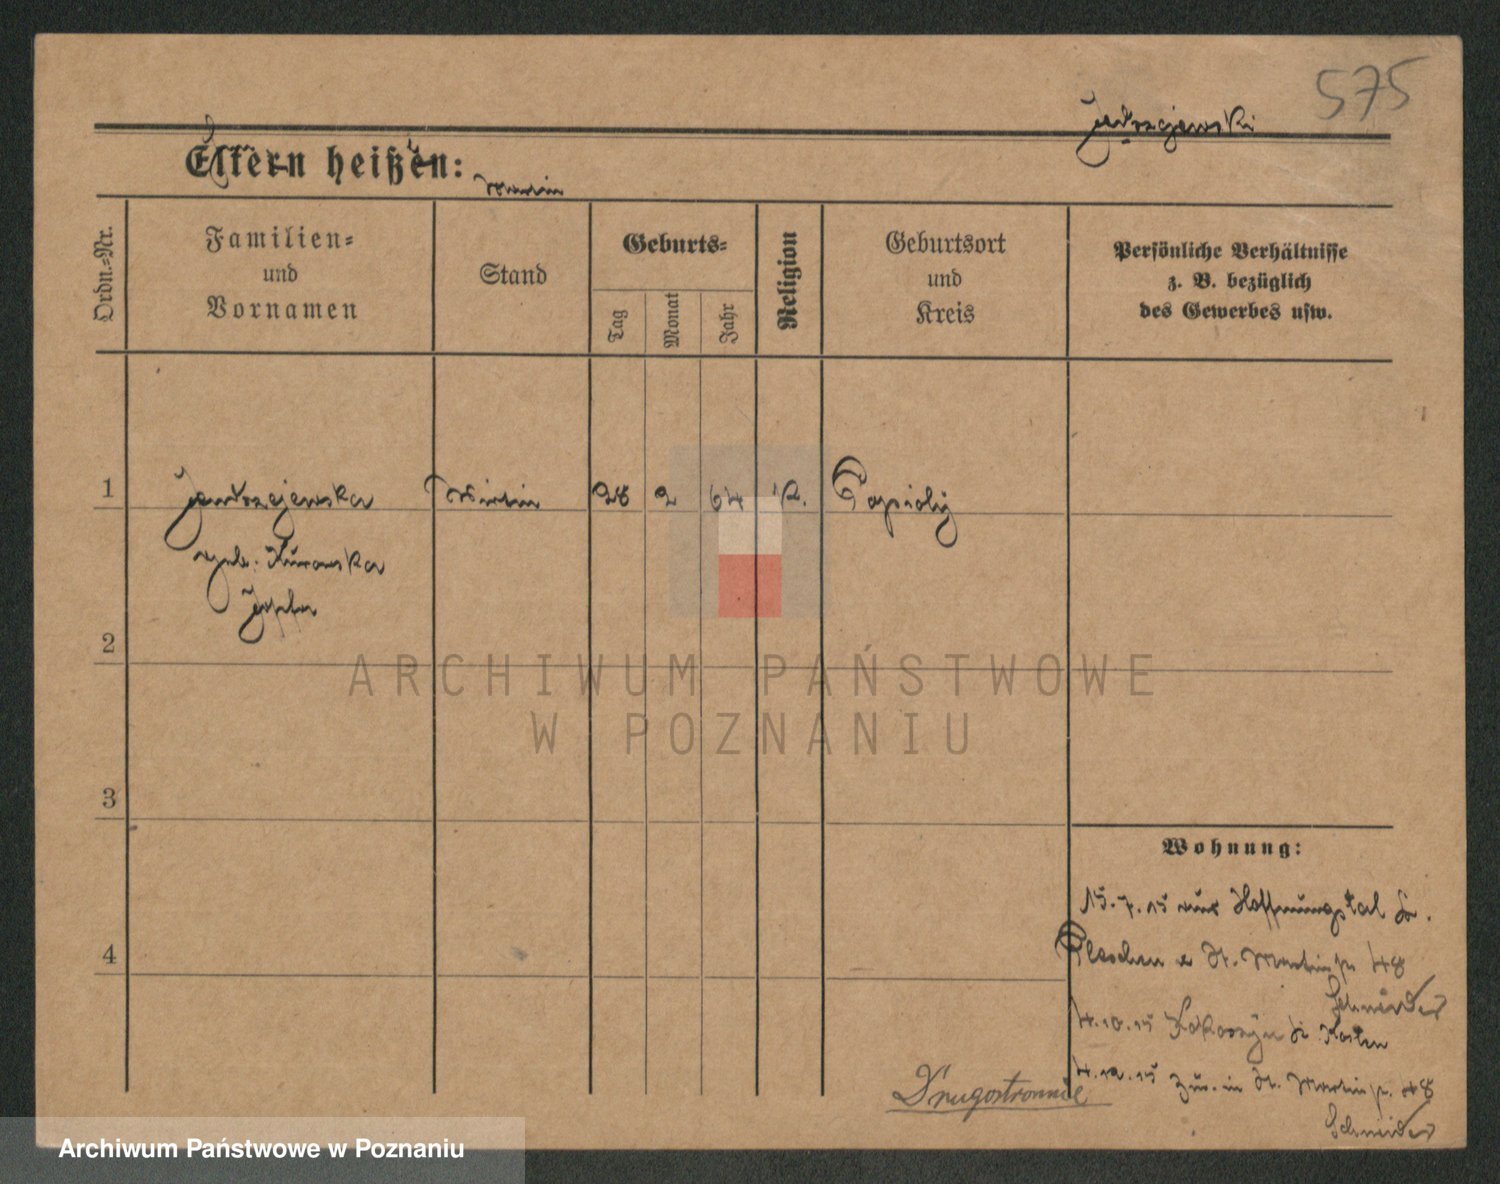 575
Jendrzejewski
Eltern heißen:
Ordn.-Nr.
Familien-
und
Vornamen
Stand
Geburts-
Tag
Monat
Jahr
Religion
Geburtsort
und
Kreis
Persönliche Verhältnisse
z. B. bezüglich
des Gewerbes usw.
1
Jendrzejewska
28
2
64
K.
geb. Kurowska
2
ARCHIWUM PAŃSTWOWE
W POZNANIU
3
Wohnung:
15.7.15 aus Hoffnungstal
4
Pleschen St. Martin 48
Schneider
4.10.15
Kosten
4.12.15 zur. in St. Martin 48
Drugostronnie
Schneider
Archiwum Państwowe w Poznaniu